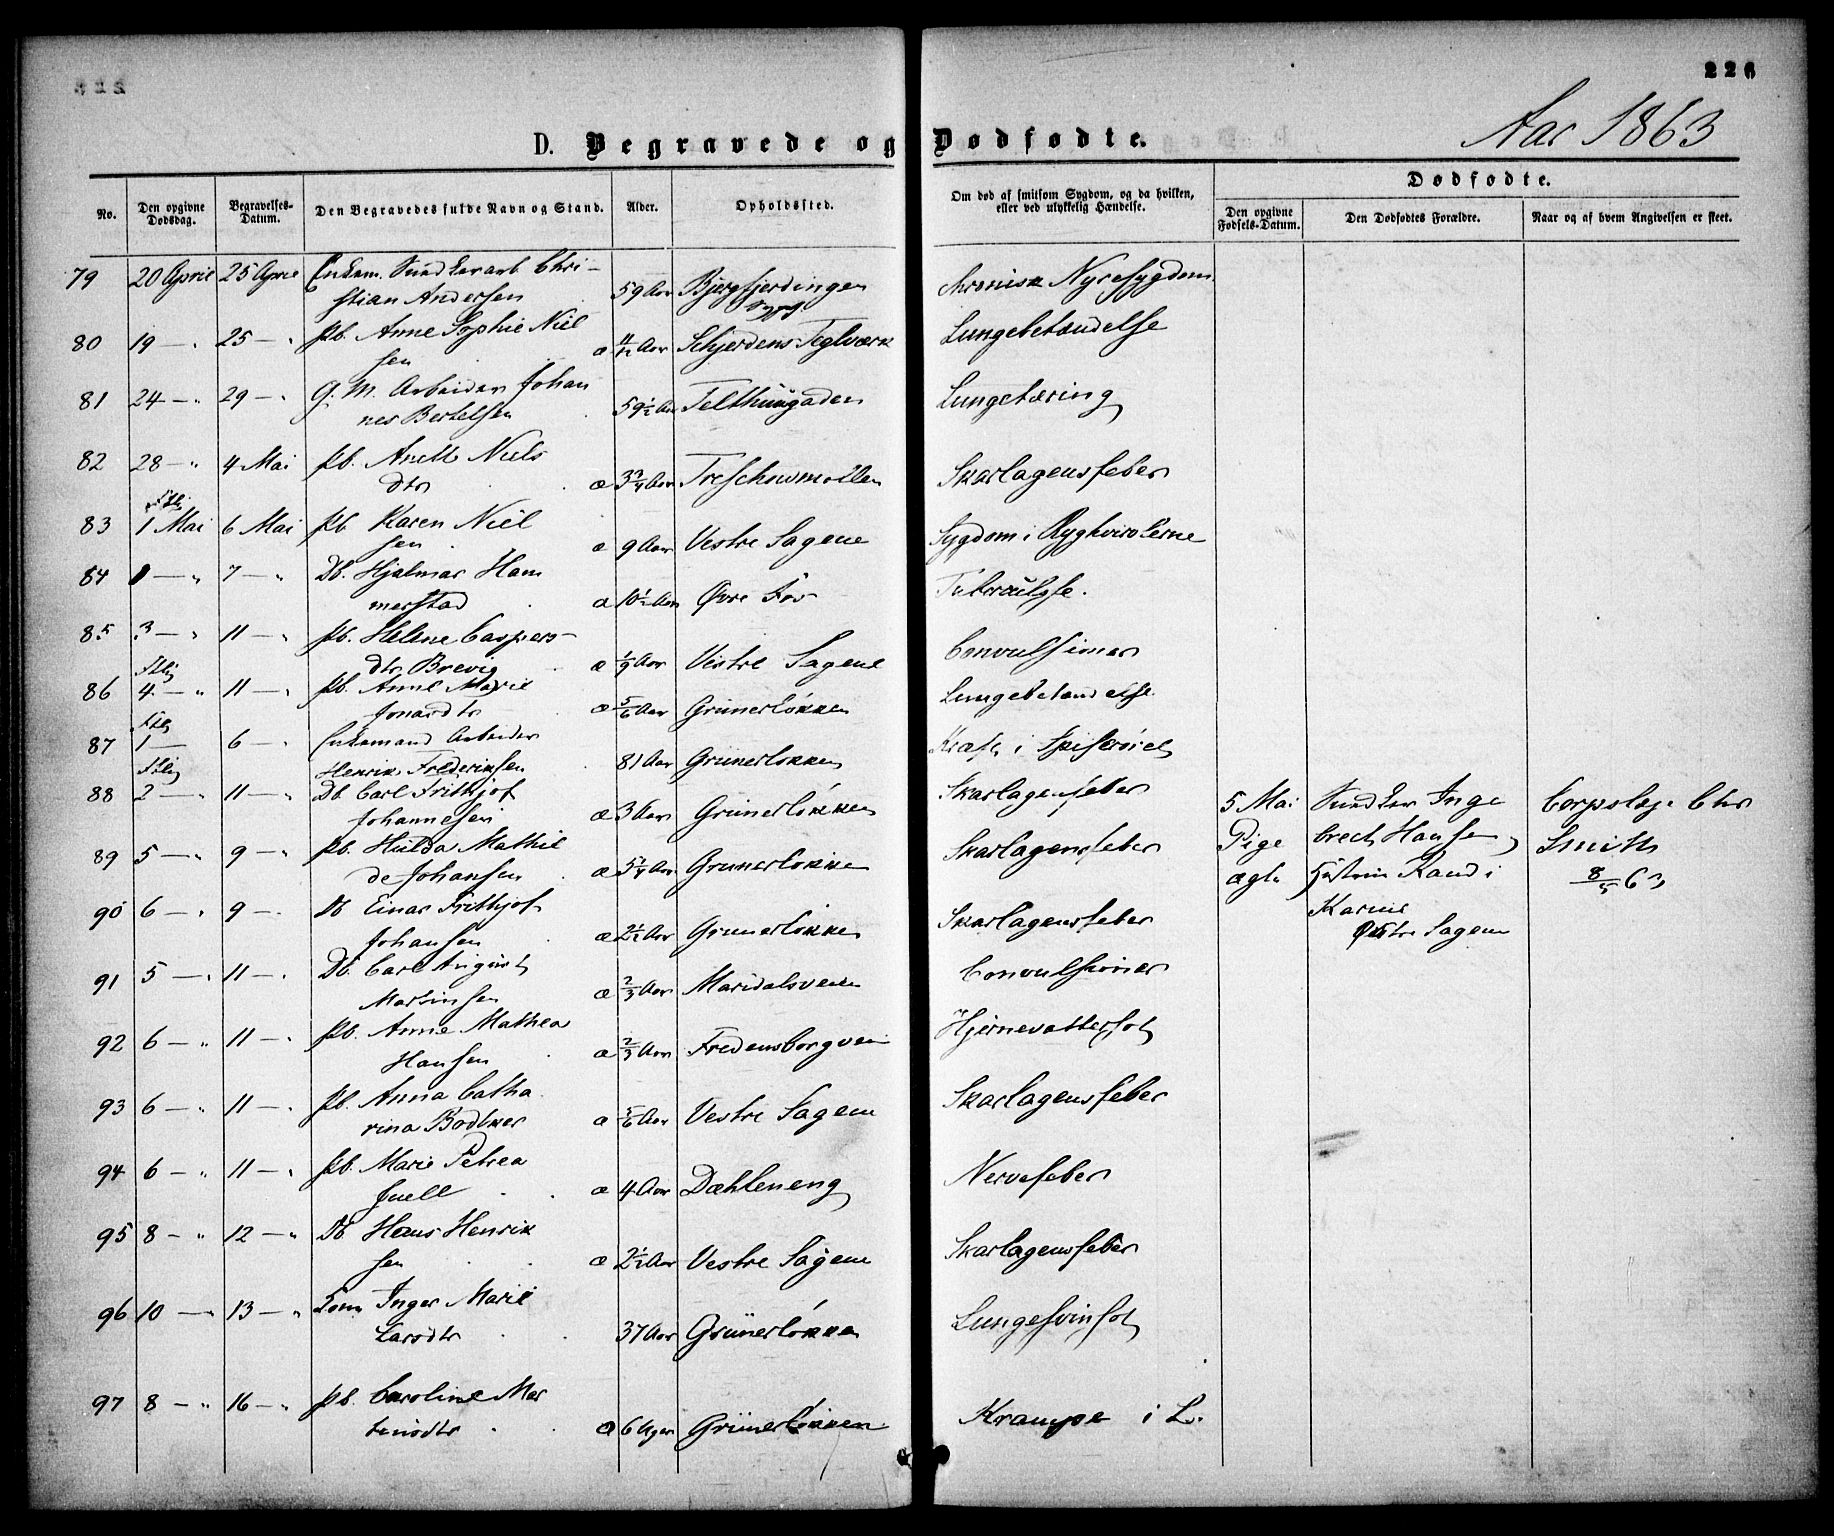 226
Aar 1863
D. Begravede og Dødfødte.
No.
Den opgivne Dødsdag.
Begravelses-Datum.
Den Begravedes fulde Navn og Stand.
Alder.
Opholdssted.
Om død af smitsom Sygdom, og da hvilken,
eller ved ulykkelig Hændelse.
Dødfødte.
Den opgivne Fødsels-Datum.
Den Dødfødtes Forældre.
Naar og af hvem Angivelsen er skeet.
79 20 April 25 April Enkem. Chri-
stian Andersen 59 Aar Bjergfjerdingen Chronisk Nyresygdom
80 19 — " 25 — " Pb. Anne Sophie Niel
sen æ 11/12 Aar Schjerdens Teglværk Lungebetændelse
81 24 — " 29 — " G. M. Arbeider Johan
nes Bertelsen 59 1/2 Aar Telthusgaden Lungetæring
82 28 — " 4 Mai Pb. Anette Niels
dtr æ 3 3/4 Aar Treschowmøllen Skarlagensfeber
83 1 Mai 6 Mai Pb. Karen Niel
sen æ 9 Aar Vestre Sagene Sygdom i Ryghvirvlerne
84 1 — " 7 — " Db. Hjalmar Ham
merstad æ 10 1/2 Aar Øvre Fos Tuberculose.
85 3 — " 11 — " Pb. Helene Caspers-
dtr Brevig æ 1/9 Aar Vestre Sagene Convulsioner
86 4 — " 11 — " Pb. Anne Marie
Jonasdtr æ 5/6 Aar Grünerløkken Lungebetændelse
87 1 — 6 — " Enkemand Arbeider
Henrik Frederiksen 81 Aar Grünerløkken Kræft i Spiserøret
88 2 — " 11 — " Db Carl Frithjof
Johannesen æ 3 Aar Grünerløkken Skarlagensfeber
89 5 — " 9 — " Pb. Hulda Mathil
de Johansen æ 5 1/4 Aar Grünerløkken Skarlagensfeber
5 Mai Inge Corpslæge Chr
Pige brecht Hansen Smith
ægte Hustru Randi 8/5 63
Karine
Østre Sagene
90 6 — " 9 — Db Einar Frithjof
Johansen æ 2 1/2 Aar Grünerløkken Skarlagensfeber
91 5 — " 11 — " Db. Carl August
Martinsen æ 2/3 Aar Maridalsveien Convulsioner
92 6 — " 11 — " Pb. Anne Mathea
Hansen æ 2/3 Aar Fredensborgvein Hjernevattersot
93 6 — " 11 — " Pb. Anna Catha
rina Bødtker æ 5/6 Aar Vestre Sagene Skarlagensfeber
94 6 — " 11 — " Pb. Marie Petrea
Juell æ 4 Aar Dæhleneng Nervefeber
95 8 — " 12 — " Db Hans Henrik
sen æ 2 1/2 Aar Vestre Sagene Skarlagensfeber
96 10 — " 13 — " Inger Marie
Larsdtr 37 Aar Grünerløkken Lungesvinsot
97 8 — " 16 — " Pb. Caroline Mar
tinsdtr æ 6 Uger Grünerløkken Krampe i L.